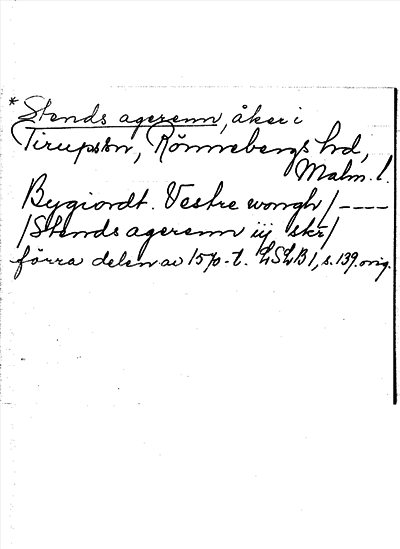 * Stends agerenn, åker i
Tirupsbn, Rönnebergs hd,
Malm. l.
Bygiordt. Vestre wongh /----
/Stends agerenn iij skr/
förra delen av 1570-t. LSLB 1, s. 139 orig.